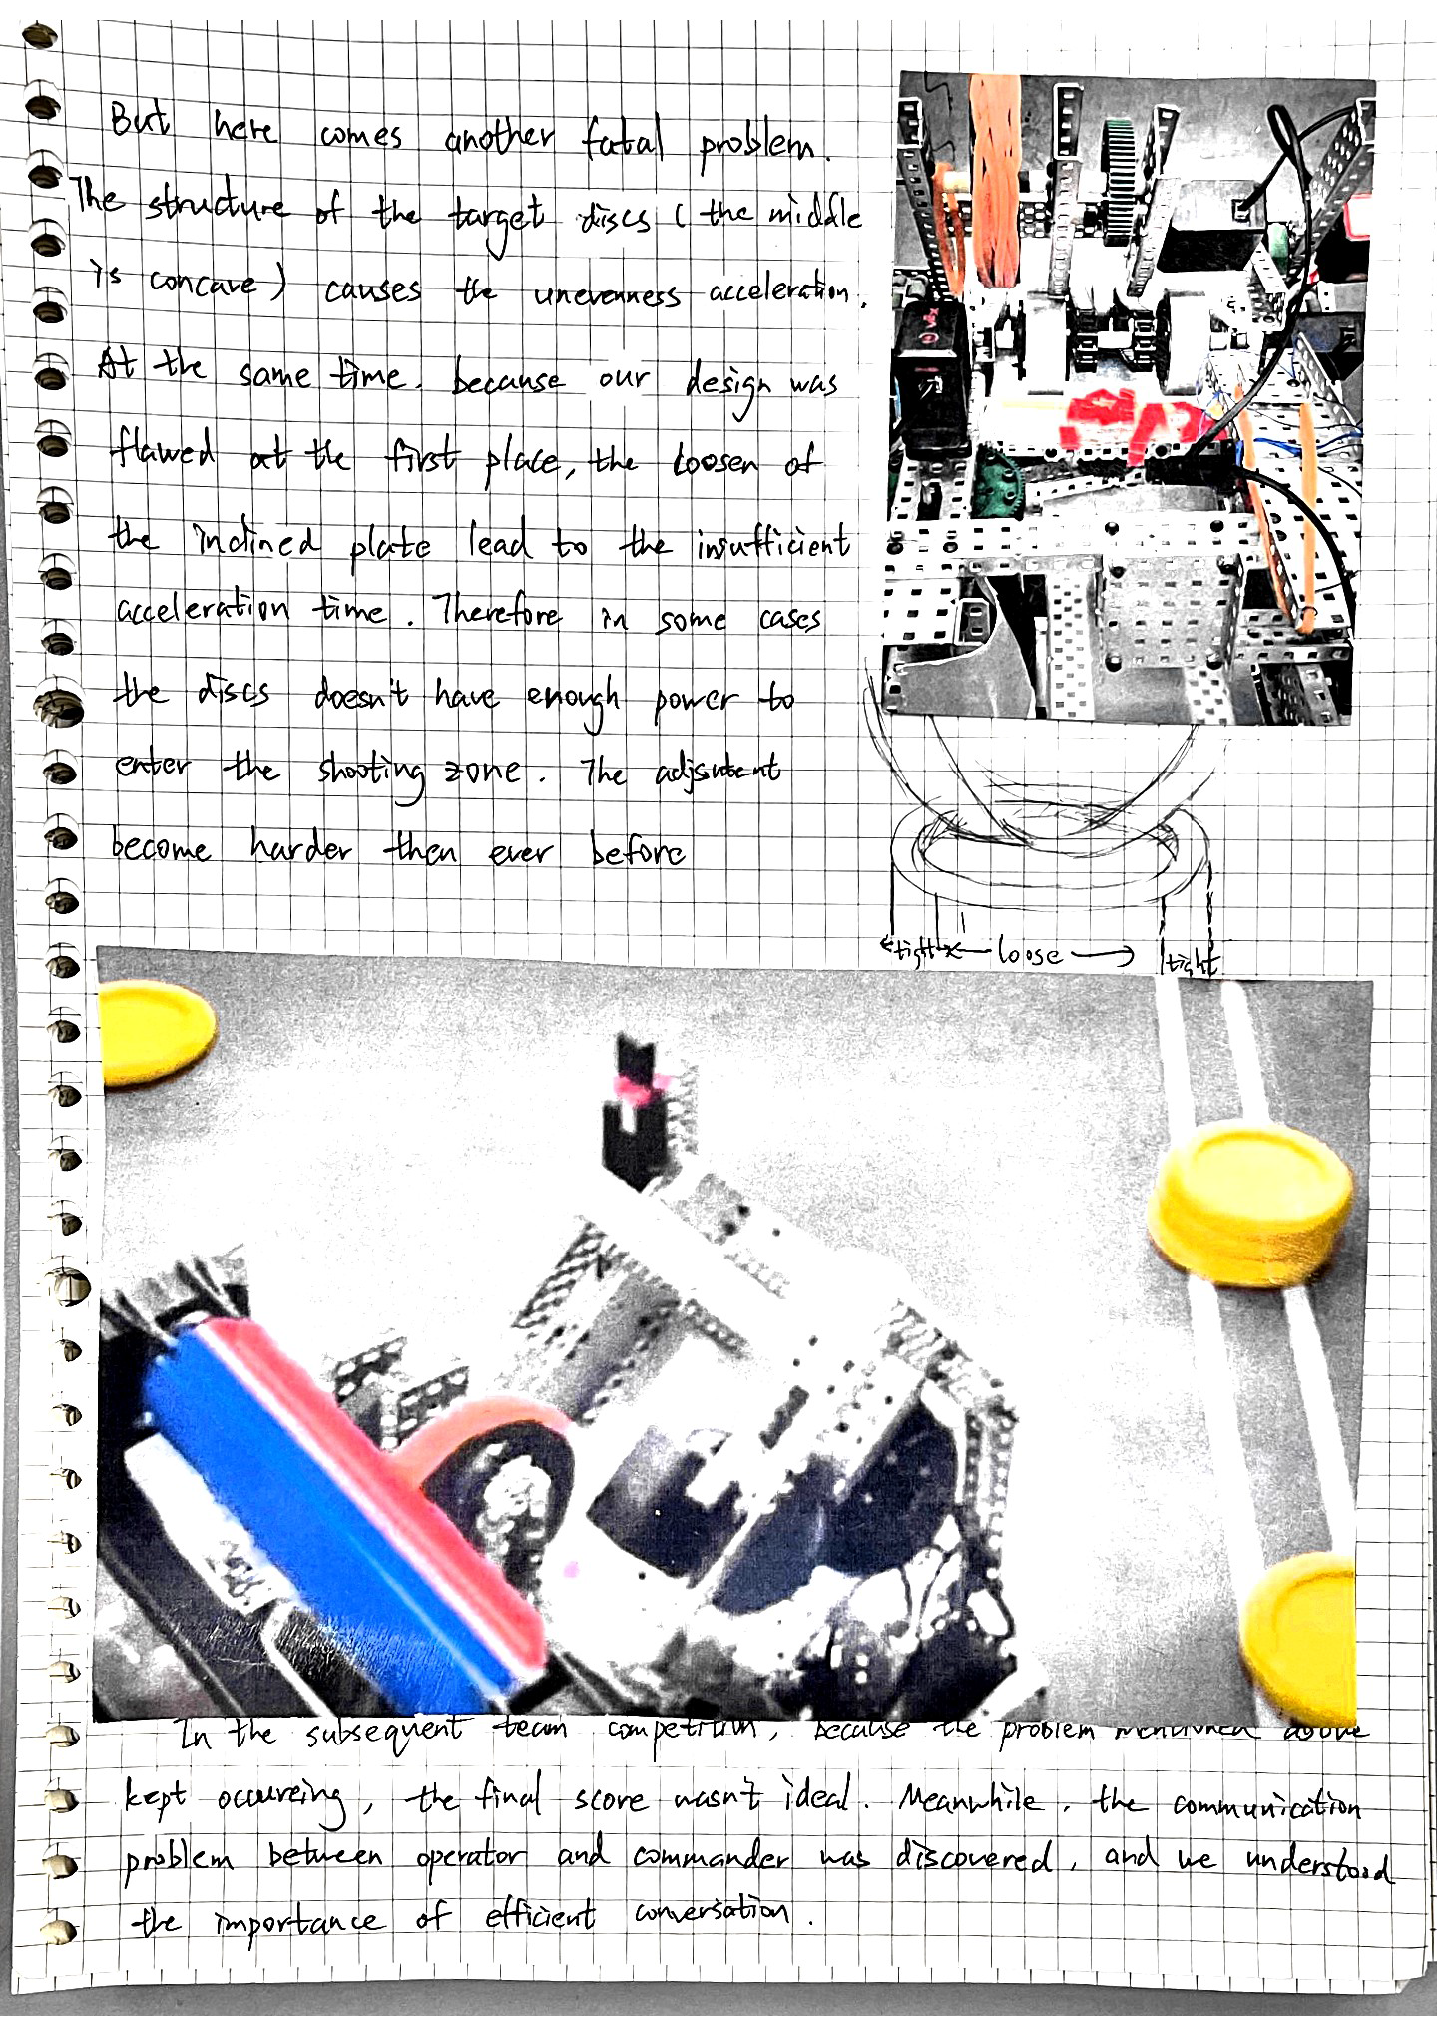 But here comes another fatal problem.
The structure of the target discs ( the middle
is concave ) causes the unevenness acceleration.
At the same time, because our design was
flawed at the first place, the loosen of
the inclined plate lead to the insufficient
acceleration time. Therefore in some cases
the discs doesn't have enough power to
enter the shooting zone. The adjsutent
become harder then ever before
tight loose tight
In the subsequent team competition, because the problem mentioned above
kept occureing, the final score wasn't ideal. Meanwhile, the communication
problem between operator and commander was discovered, and we understood
the importance of efficient conversation.